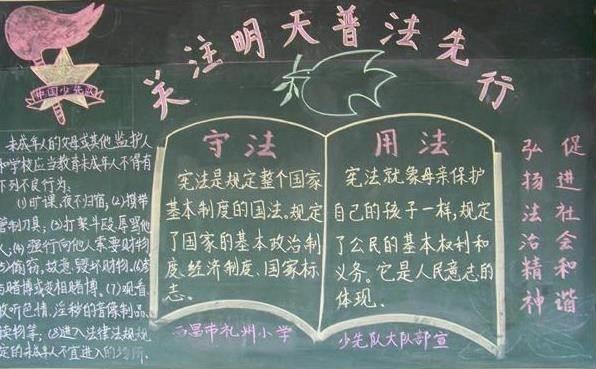 关注明天普法先行
中国少先队
未成年人的父母或其他监护人
和学校应当教育未成年人不得有
下列不良行为:
(1)旷课、夜不归宿,(2)携带
管制刀具;(3)打架斗殴、辱骂他
人;(4)强行向他人索要财物
(5)偷窃、故意毁坏财物,(6)参
与赌博或变相赌博,(7)观看
收听色情、淫秽的音像制品、
读物等;(8)进入法律法规规
定的未成年人不宜进入的场所.
守法
宪法是规定整个国家
基本制度的国法。规定
了国家的基本政治制
度、经济制度、国家标
志。
西昌市礼州小学
用法
宪法就象母亲保护
自己的孩子一样,规定
了公民的基本权利和
义务。它是人民意志的
体现.
少先队大队部宣
促进社会和谐
弘扬法治精神